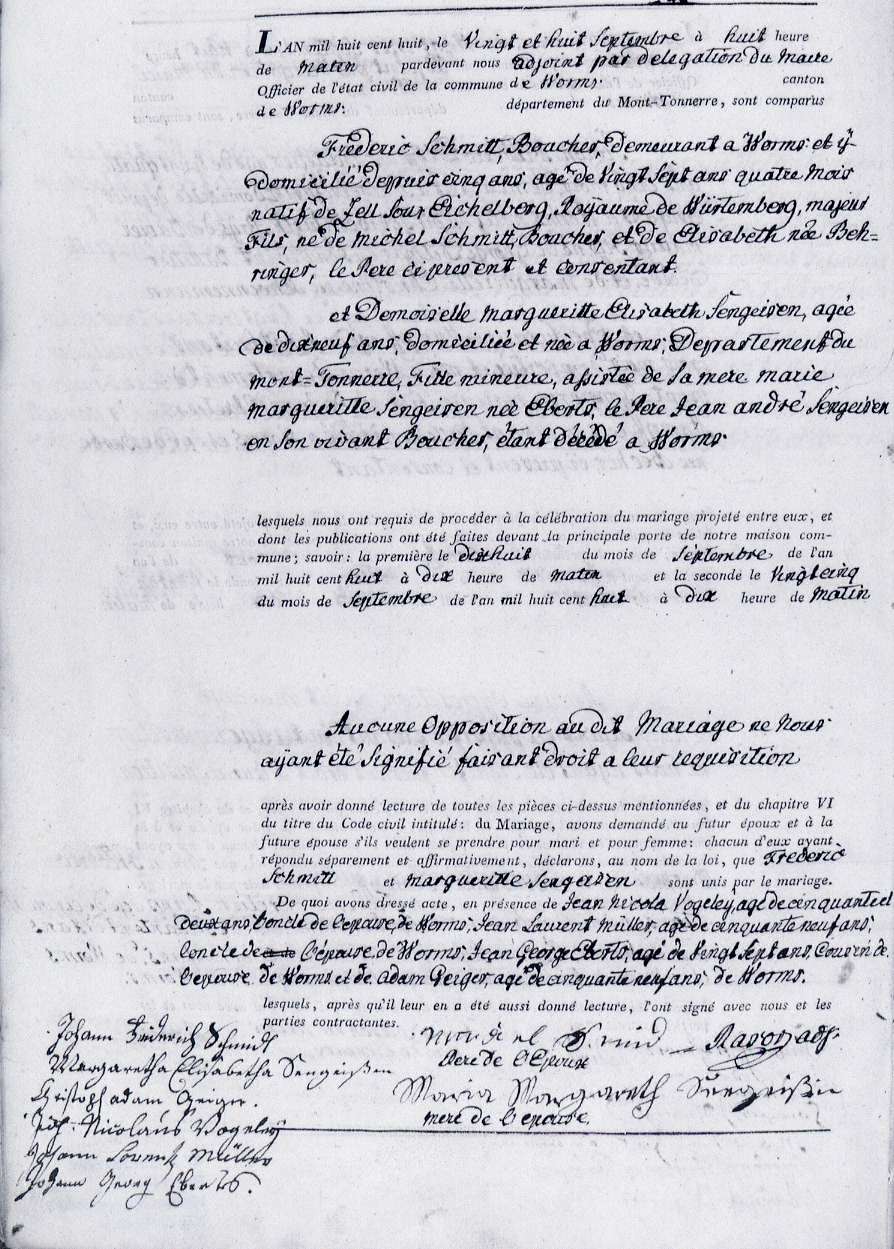 L'AN mil huit cent huit, le Vingt et huit Septembre à huit heure
de Matin pardevant nous adjoint par délégation du Maire
Officier de l'état civil de la commune de Worms canton
de Worms. département du Mont-Tonnerre, sont comparus
Frédéric Schmitt, Boucher, demeurant a Worms et ÿ
domicilié depuis cinq ans, agé de Vingt Sept ans quatre mois
natif de Zell Sous Eichelberg, Royaume de Würtemberg, majeur
Fils, né de Michel Schmitt, Boucher, et de Elisabeth née Beh=
ringer, le Pere ci present et consentant.
et Demoiselle Margueritte Elisabeth Sengeisen, agée
de dixneuf ans, domiciliée et née a Worms, Departement du
mont=Tonnerre, Fille mineure, assistée de Sa mere marie
margueritte Sengeisen née Eberts, le Pere Jean andré Sengeisen
en Son vivant Boucher, étant décédé a Worms.
lesquels nous ont requis de procéder à la célébration du mariage projeté entre eux, et
dont les publications ont été faites devant la principale porte de notre maison com-
mune; savoir: la première le dixhuit du mois de Septembre de l'an
mil huit cent huit à dix heure de matin et la seconde le Vingtcinq
du mois de Septembre de l'an mil huit cent huit à dix heure de Matin
Aucune Opposition au dit Mariage ne nous
aÿant été Signifié faisant droit a leur requisition
après avoir donné lecture de toutes les pièces ci-dessus mentionnées, et du chapitre VI
du titre du Code civil intitulé: du Mariage, avons demandé au futur époux et à la
future épouse s'ils veulent se prendre pour mari et pour femme: chacun d'eux ayant
répondu séparement et affirmativement, déclarons, au nom de la loi, que Frédéric
Schmitt et Margueritte Sengeisen sont unis par le mariage.
De quoi avons dressé acte, en présence de Jean Nicola Vogeley, agé de cinquante et
deux ans, l'oncle de l'epouse, de Worms, Jean Laurent Müller, agé de cinquante neuf ans,
l'oncle de l'épouse, de Worms, Jean George Eberts, agé de Vingt Sept ans, Cousin de
l'epouse de Worms et de adam Geiger, agé de cinquante neuf ans, de Worms.
lesquels, après qu'il leur en a été aussi donné lecture, l'ont signé avec nous et les
parties contractantes.
Johann Friederich Schmidt
Margaretha Elisabetha Sengeißen
Christoph adam Geiger.
Joh. Nicolaus Vogeley
Johann Lorentz Müller
Johann Georg Eberts.
Pere de l'Epoux
Maria Margareth Sengeißin
mere de l'epouse.